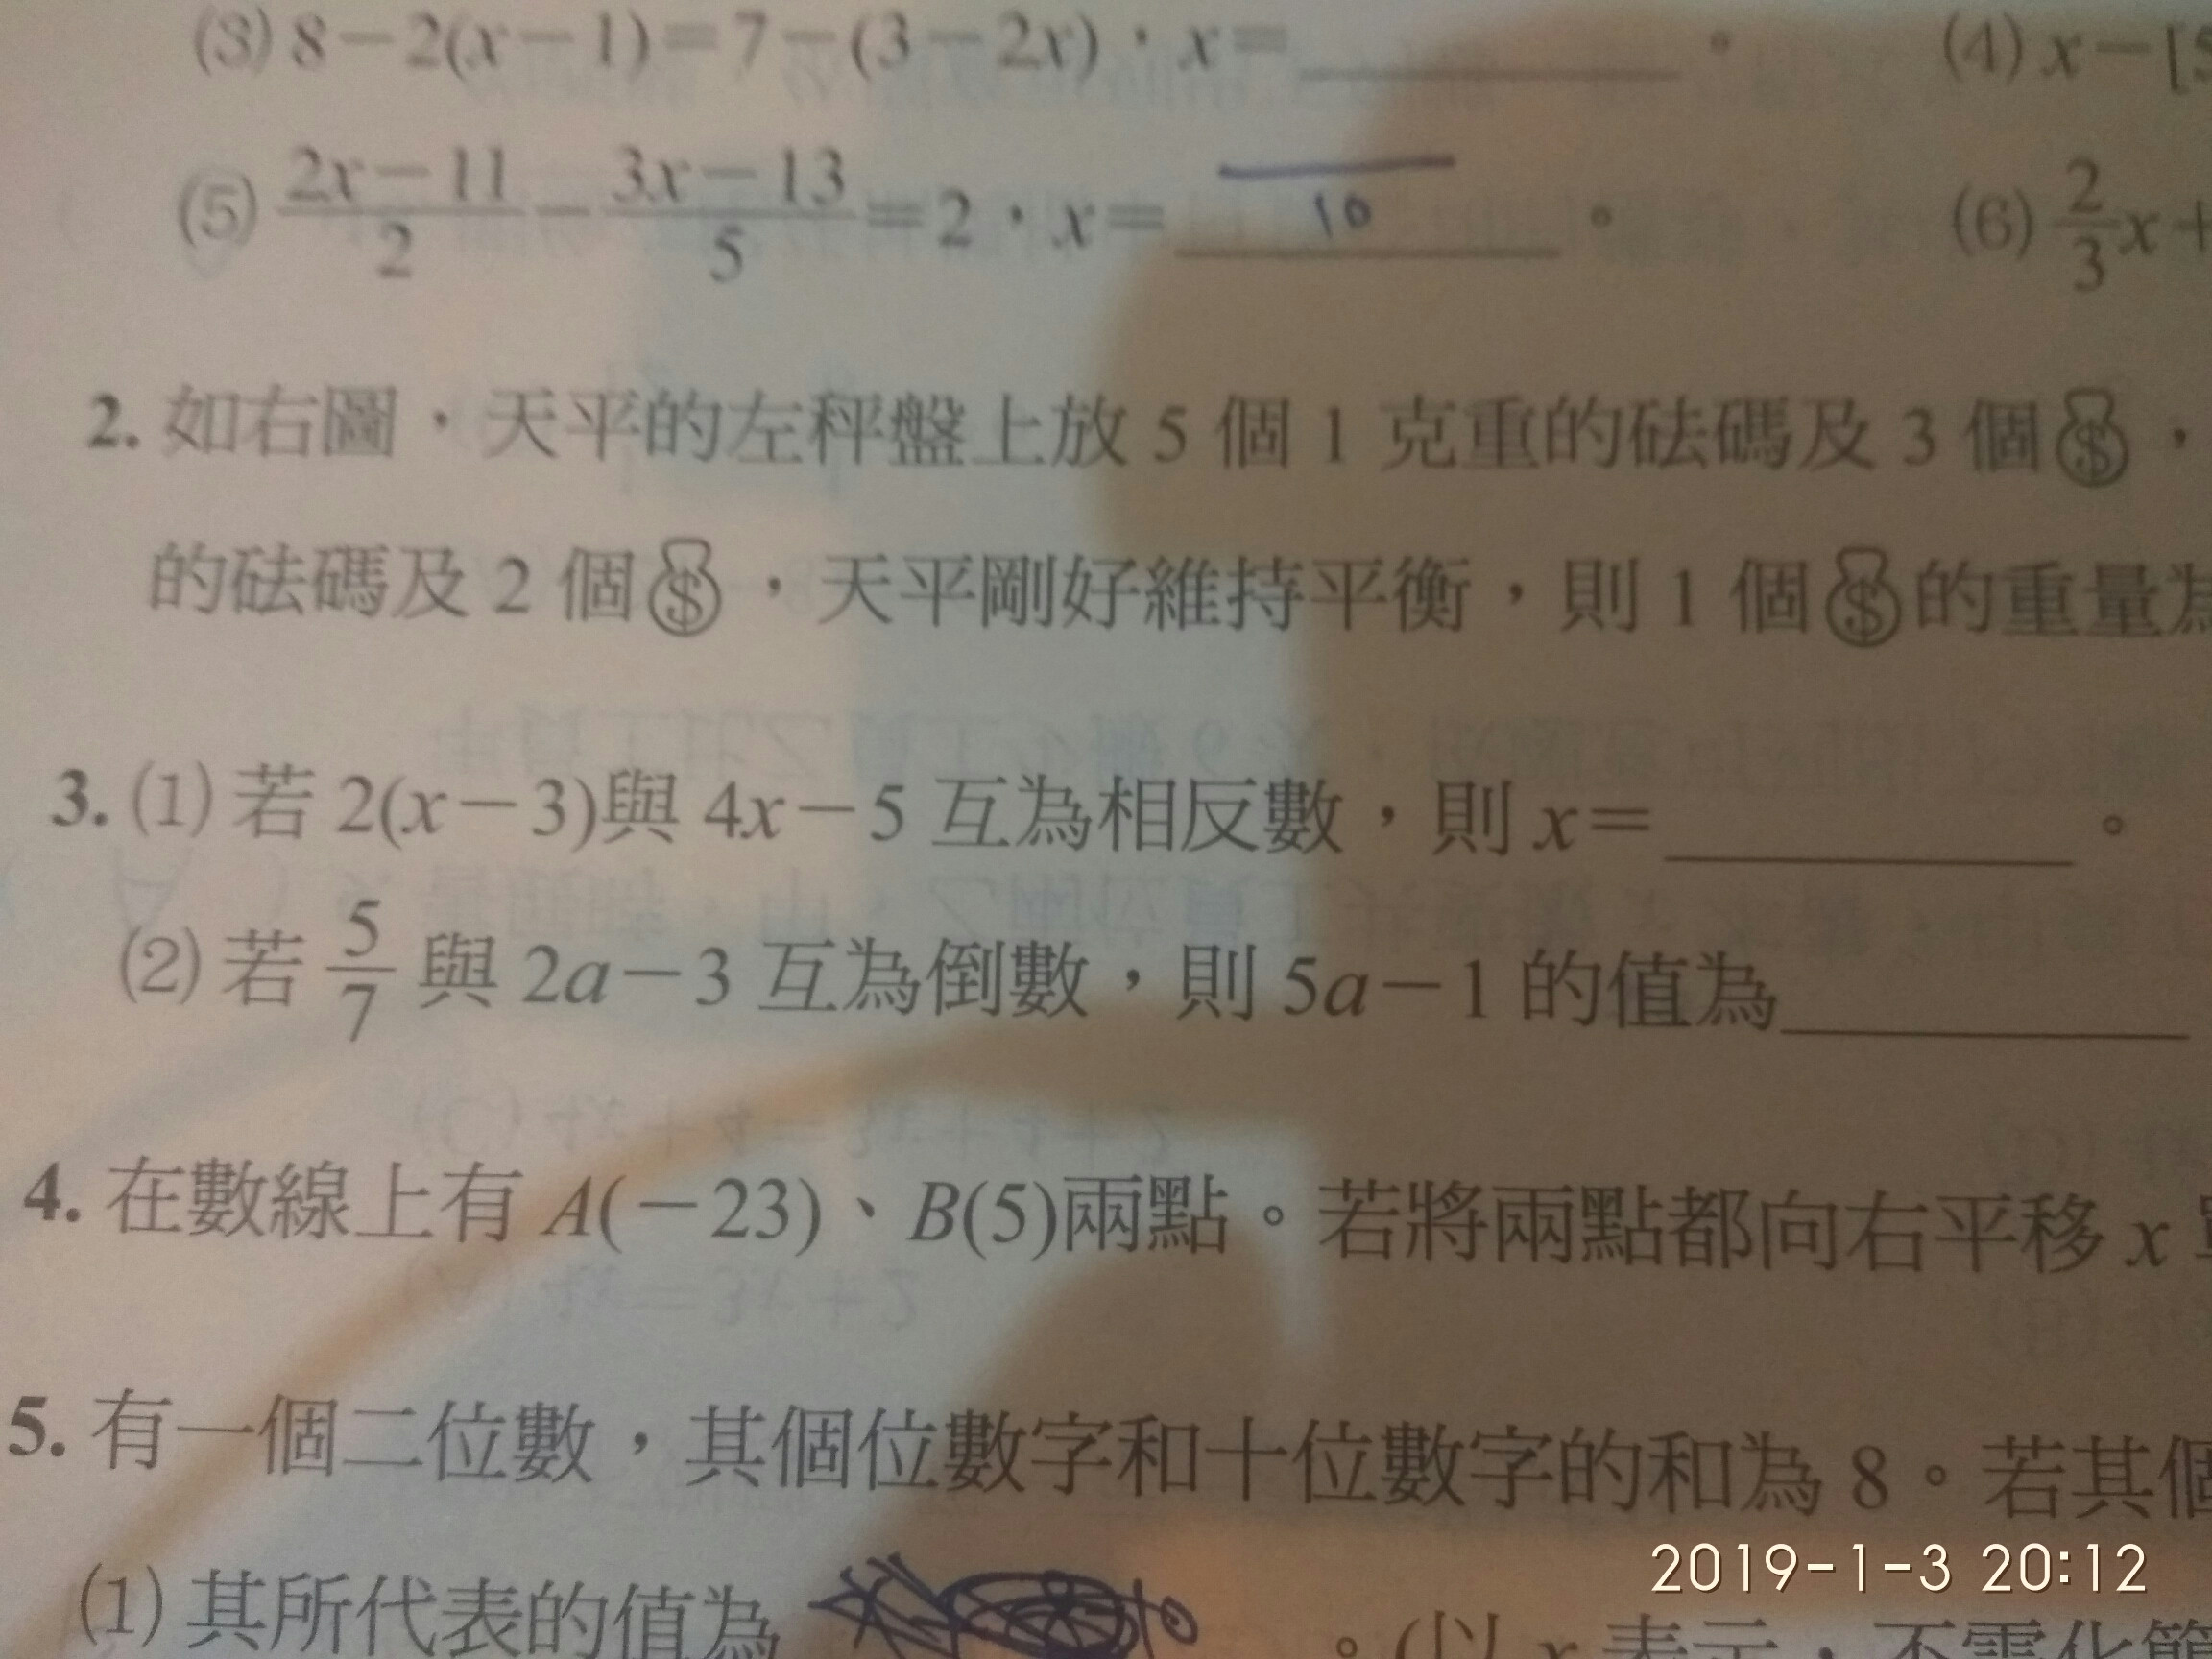 (3) 8－2(x－1)＝7－(3－2x)，x＝＿＿＿＿。 (4) x－[5
(5) \frac{2x－11}{2}－\frac{3x－13}{5}＝2，x＝ 10 。 (6) \frac{2}{3}x＋
2. 如右圖，天平的左秤盤上放 5 個 1 克重的砝碼及 3 個$，
的砝碼及 2 個$，天平剛好維持平衡，則 1 個$的重量為
3. (1) 若 2(x－3)與 4x－5 互為相反數，則 x＝＿＿＿＿。
(2) 若 \frac{5}{7} 與 2a－3 互為倒數，則 5a－1 的值為＿＿＿＿
4. 在數線上有 A(－23)、B(5)兩點。若將兩點都向右平移 x
5. 有一個二位數，其個位數字和十位數字的和為 8。若其個
(1) 其所代表的值為 。(以 x 表示，不需化簡
2019-1-3 20:12